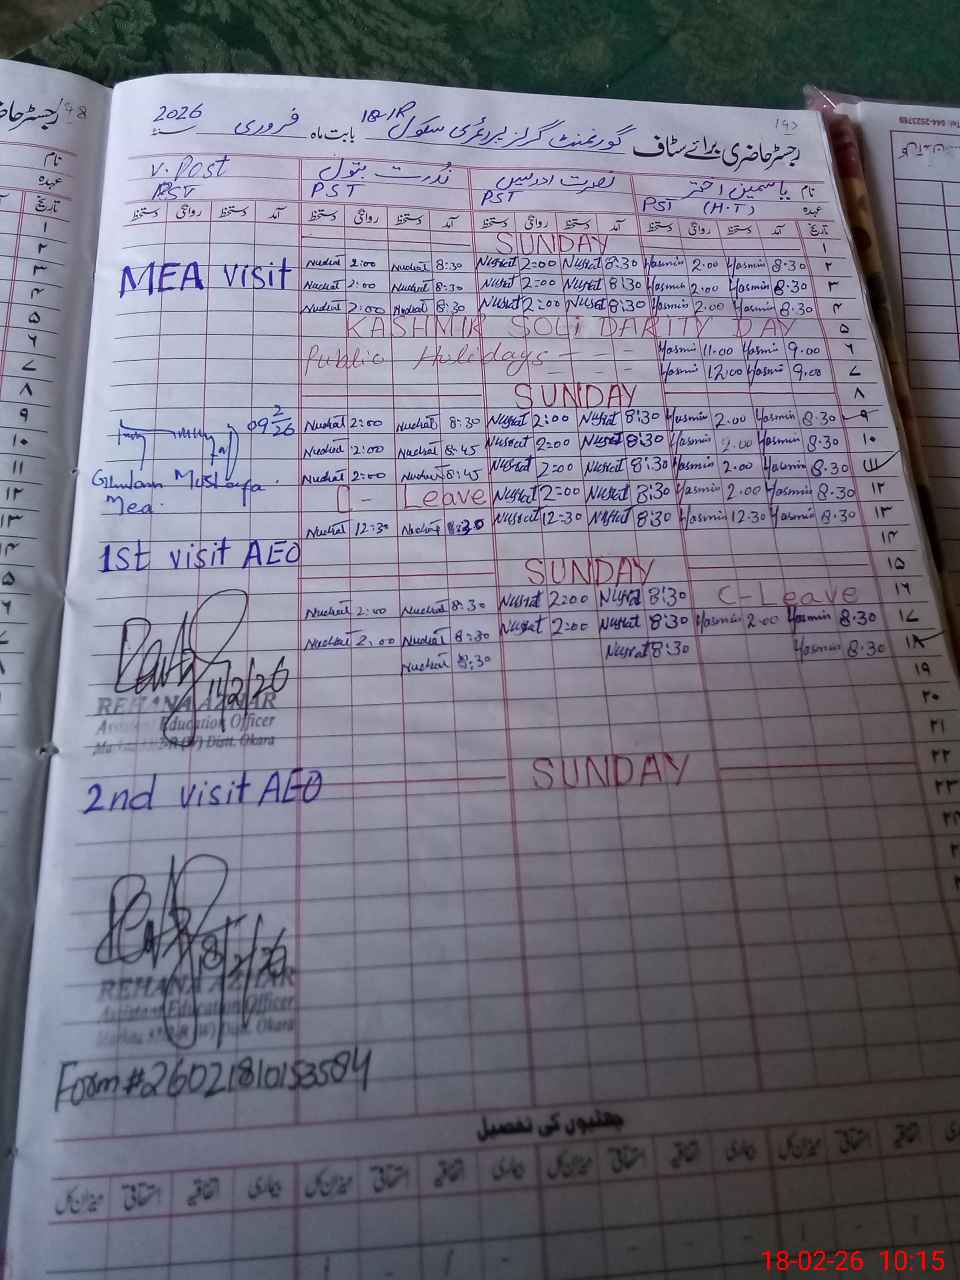 رجسٹر حاضری برائے سٹاف گورنمنٹ گرلز پرائمری سکول 18-1R بابت ماہ فروری سنہ 2026
نام یاسمین اختر نصرت ادریس نُدرت بتول V. Post
عہدہ PST (H.T) PST PST PST
تاریخ آمد دستخط روانگی دستخط آمد دستخط روانگی دستخط آمد دستخط روانگی دستخط آمد دستخط روانگی دستخط
۱ SUNDAY
۲ Nudrat 2:00 Nudrat 8:30 Nusrat 2:00 Nusrat 8:30 Yasmin 2.00 Yasmin 8.30
MEA visit
۳ Nudrat 2:00 Nudrat 8:30 Nusrat 2:00 Nusrat 8:30 Yasmin 2.00 Yasmin 8.30
۴ Nudrat 2:00 Nudrat 8:30 Nusrat 2:00 Nusrat 8:30 Yasmin 2.00 Yasmin 8.30
۵ KASHMIR SOLiDARITY DAY
۶ Public Holidays - - - Yasmin 11.00 Yasmin 9.00
۷ - - - Yasmin 12.00 Yasmin 9.00
۸ SUNDAY
۹ Nudrat 2:00 Nudrat 8:30 Nusrat 2:00 Nusrat 8:30 Yasmin 2.00 Yasmin 8.30
09 2/26
۱۰ Nudrat 2:00 Nudrat 8:45 Nusrat 2:00 Nusrat 8:30 Yasmin 2.00 Yasmin 8.30
۱۱ Nudrat 2:00 Nudrat 8:45 Nusrat 2:00 Nusrat 8:30 Yasmin 2.00 Yasmin 8.30
Ghulam Mustafa
Mea.
۱۲ C - Leave Nusrat 2:00 Nusrat 8:30 Yasmin 2.00 Yasmin 8.30
۱۳ Nudrat 12:30 Nudrat 8:30 Nusrat 12:30 Nusrat 8:30 Yasmin 12.30 Yasmin 8.30
۱۴
1st visit AEO
۱۵ SUNDAY
۱۶ Nudrat 2:00 Nudrat 8:30 Nusrat 2:00 Nusrat 8:30 C-Leave
۱۷ Nudrat 2:00 Nudrat 8:30 Nusrat 2:00 Nusrat 8:30 Yasmin 2.00 Yasmin 8.30
۱۸ Nudrat 8:30 Nusrat 8:30 Yasmin 8.30
۱۹
14/2/26
REHANA AZHAR
Assistant Education Officer
Distt. Okara
۲۰
۲۱
۲۲ SUNDAY
2nd visit AEO
۲۳
18/2/26
REHANA AZHAR
Assistant Education Officer
Distt. Okara
Form # 26021810153584
چھٹیوں کی تفصیل
بیماری اتفاقیہ استحقاقی میزان کل بیماری اتفاقیہ استحقاقی میزان کل بیماری اتفاقیہ استحقاقی میزان کل
18-02-26 10:15